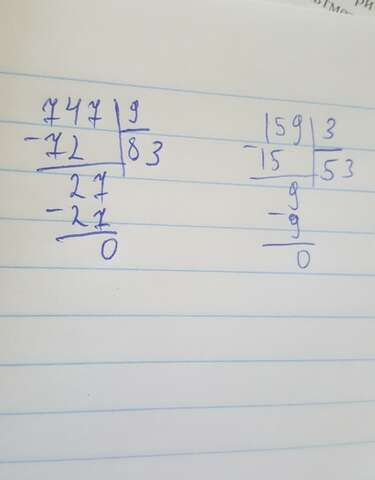 747 9
-72 83
27
-27
0
159 3
-15 53
9
-9
0